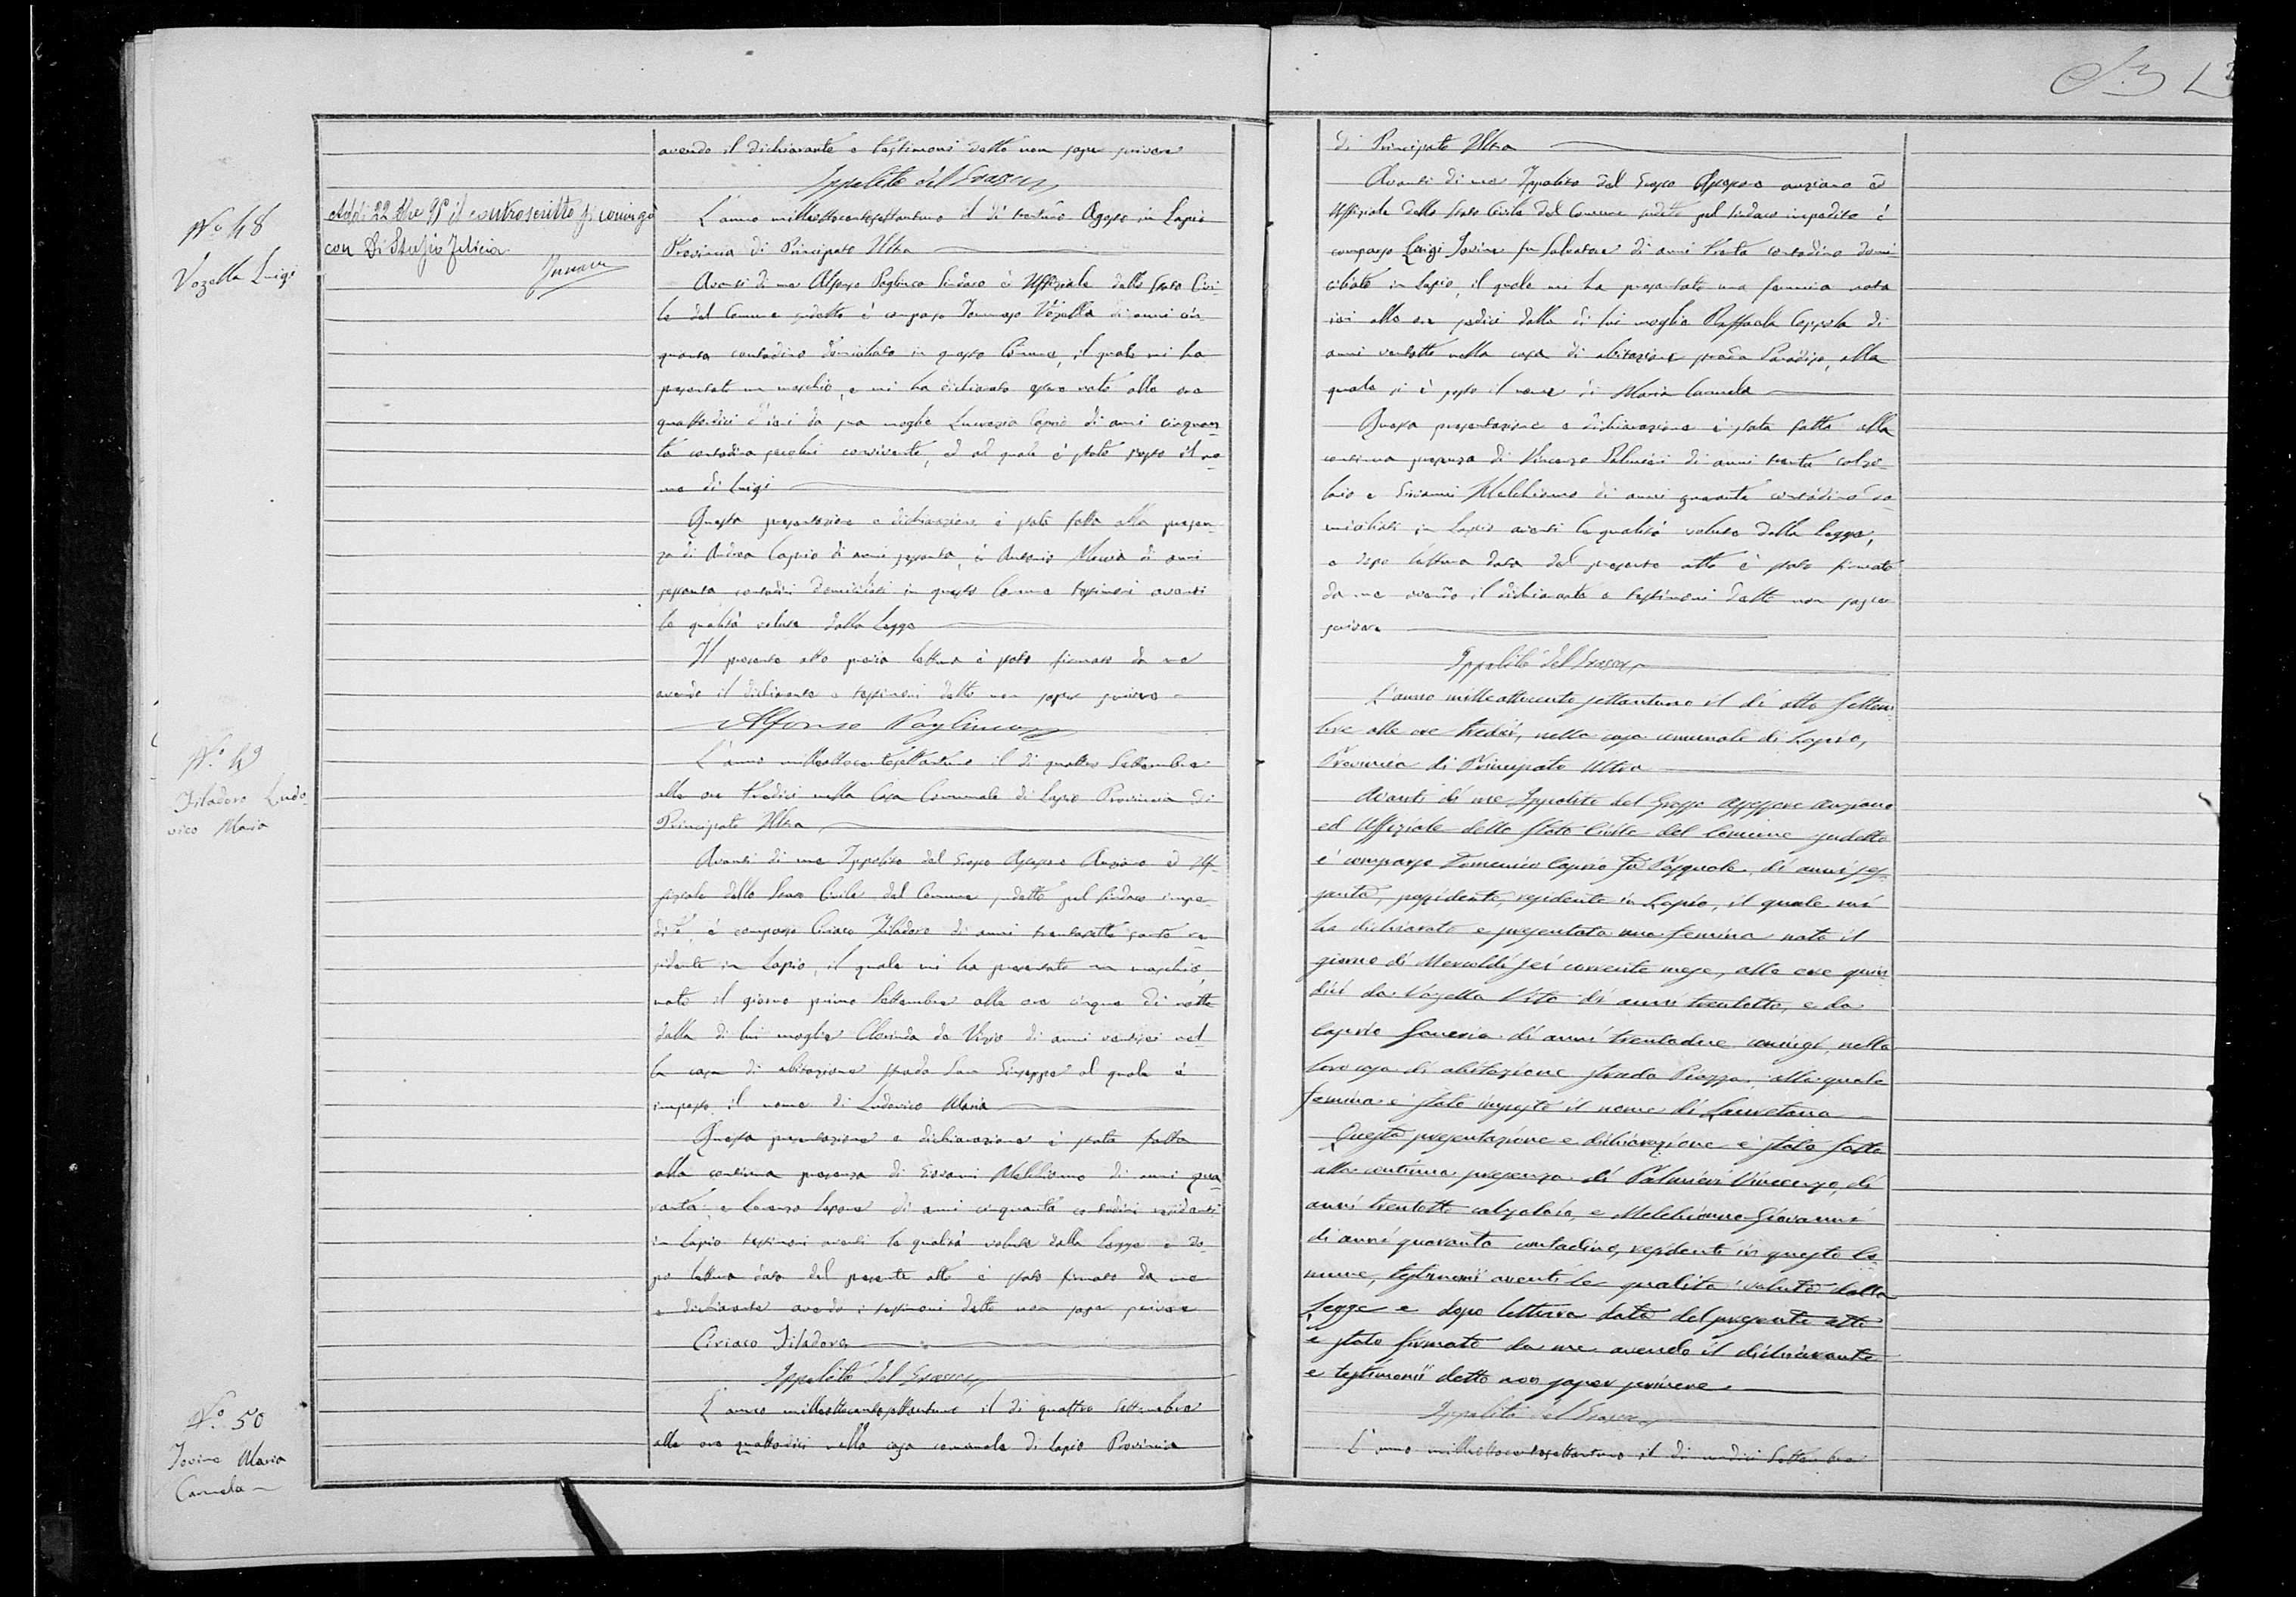 N.º 48
Vozella Luigi
Addì 22 che 95 il controscritto si coniugò
con Di Stefio Felicia
N.º 49
Filadoro Ludo-
vico Maria
N.º 50
Iovine Maria
Carmela
avendo il dichiarante e testimoni detto non saper scrivere
Ippolito del Grosso
L'anno milleottocentosettantuno il dì trentuno Agosto in Lapio
Provincia di Principato Ultra
Avanti di me Alfonso Pagliuca Sindaco ed Uffiziale dello Stato Civi-
le del Comune sudetto è comparso Tommaso Vozella di anni cin-
quanta contadino domiciliato in questo Comune, il quale mi ha
presentato un maschio, e mi ha dichiarato essere nato alle ore
quattordici d'ieri da sua moglie Lucrezia Caprio di anni cinquan-
ta contadina secolui convivente, ed al quale è stato posto il no-
me di Luigi
Questa presentazione e dichiarazione è stata fatta alla presen-
za di Andrea Caprio di anni sessanta, ed Antonio di anni
sessanta contadini domiciliati in questo Comune testimoni aventi
le qualità volute dalla Legge
Il presente atto previa lettura è stato firmato da me
avendo il dichiarante e testimoni detto non saper scrivere
Alfonso Pagliuca
L'anno milleottocentosettantuno il dì quattro Settembre
alle ore tredici nella Casa Comunale di Lapio Provincia di
Principato Ultra
Avanti di me Ippolito del Grosso Assessore Anziano ed Uf-
fiziale dello Stato Civile del Comune sudetto pel Sindaco impe-
dito, è comparso Ciriaco Filadoro di anni trentasette sarto re-
sidente in Lapio, il quale mi ha presentato un maschio
nato il giorno primo Settembre alle ore cinque di notte
dalla di lui moglie Clorinda de Vizio di anni ventisei nel-
la casa di abitazione strada San Giuseppe al quale è
imposto il nome di Ludovico Maria
Questa presentazione e dichiarazione è stata fatta
alla continua presenza di Giovanni Melchionno di anni qua-
ranta, e Lorenzo Lepore di anni cinquanta contadini residenti
in Lapio testimoni aventi le qualità volute dalla Legge e do-
po lettura data del presente atto è stato firmato da me
e dichiarante avendo i testimoni detto non saper scrivere
Ciriaco Filadoro
Ippolito del Grosso
L'anno milleottocentosettantuno il dì quattro Settembre
alle ore quattordici nella casa comunale di Lapio Provincia
di Principato Ultra
Avanti di me Ippolito del Grosso Assessore anziano ed
Uffiziale dello Stato Civile del Comune sudetto pel Sindaco impedito è
comparso Luigi Iovine fu Salvatore di anni trenta contadino domi-
ciliato in Lapio, il quale mi ha presentato una femmina nata
ieri alle ore sedici dalla di lui moglie Raffaela Coppola di
anni ventotto nella casa di abitazione strada Paradiso, alla
quale si è posto il nome di Maria Carmela
Questa presentazione e dichiarazione è stata fatta alla
continua presenza di Vincenzo Palmieri di anni trenta calzo-
laio e Giovanni Melchionno di anni quaranta contadino do-
miciliati in Lapio aventi le qualità volute dalla legge,
e dopo lettura data del presente atto è stato firmato
da me avendo il dichiarante e testimoni detto non saper
scrivere
Ippolito del Grosso
L'anno milleottocento settantuno il dì otto Settem-
bre alle ore tredici, nella casa comunale di Lapio,
Provincia di Principato Ultra
Avanti di me, Ippolito del Grosso assessore anziano
ed Uffiziale dello Stato Civile del Comune sudetto
è comparso Domenico Caprio fu Pasquale, di anni ses-
santa, possidente, residente in Lapio, il quale mi
ha dichiarato e presentata una femina nata il
giorno di Mercoldì sei corrente mese, alle ore quin-
dici da Vozella Vito di anni trentotto, e da
Caprio Saveria di anni trentadue coniugi, nella
loro casa di abitazione strada Piazza, alla quale
femina è stato imposto il nome di Lauretana
Questa presentazione e dichiarazione è stata fatta
alla continua presenza di Palmieri Vincenzo, di
anni trentotto calzolaio, e Melchionno Giovanni
di anni quaranta contadino, residenti in questo Co-
mune, testimonii aventi le qualità volute dalla
Legge e dopo lettura data del presente atto
è stato firmato da me avendo il dichiarante
e testimonii detto non saper scrivere.
Ippolito del Grosso
L'anno milleottocentosettantuno il dì undici Settembre